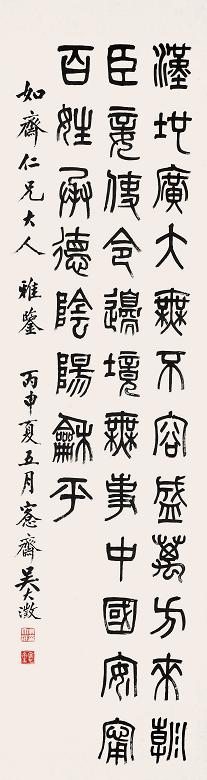 漢地廣大無不容盛萬方來朝
臣妾使令邊境無事中國安寧
百姓承德陰陽龢平
如齋仁兄大人雅鑒 丙申夏五月愙齋吳大澂